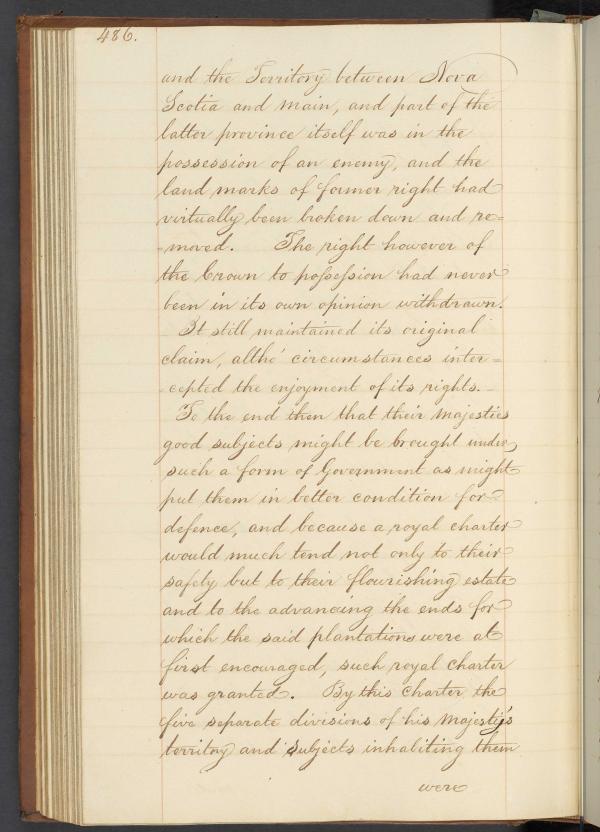 486.
and the Territory between Nova
Scotia and main, and part of the
latter province itself was in the
possession of an enemy, and the
land marks of former right had
virtually been broken down and re=
-moved. The right however of
the Crown to poſseſsion had never
been in its own opinion withdrawn.
It still maintained its original
claim, altho' circumstances inter=
-cepted the enjoyment of its rights.-
To the end then that their majesties
good subjects might be brought under
such a form of Government as might
put them in better condition for
defence, and because a royal charter
would much tend not only to their
safety but to their flourishing estate
and to the advancing the ends for
which the said plantations were at
first encouraged, such royal charter
was granted. By this charter the
five separate divisions of his majesty's
territory and subjects inhabiting them
were